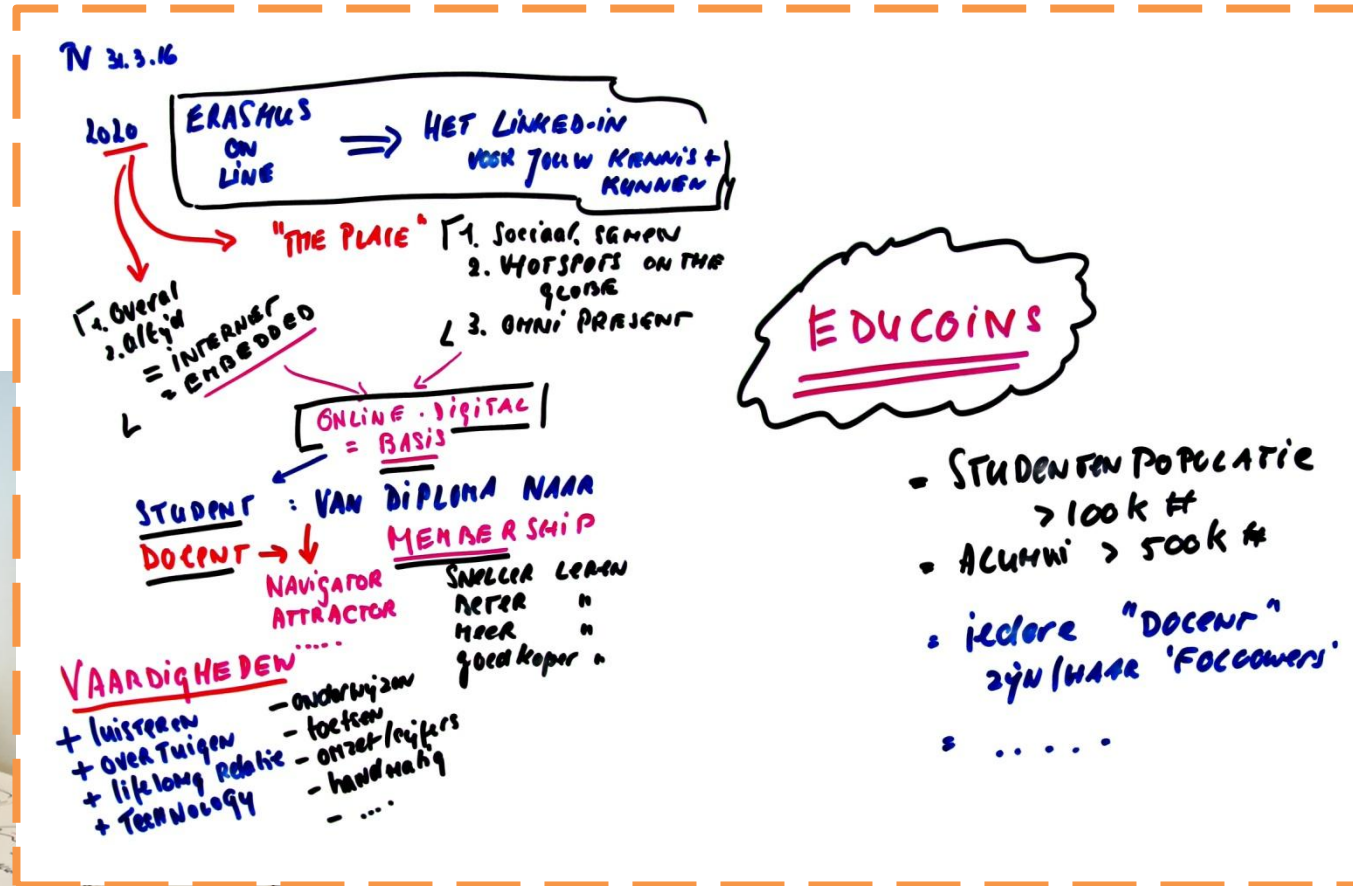 TV 31.3.16
2020
ERASMUS
ON
LINE
⇒ HET LINKED-IN
VOOR JOUW KENNIS +
KUNNEN
"THE PLACE"
1. Sociaal, SAMEN
2. HOTSPOTS ON THE
GLOBE
3. OMNI PRESENT
1. overal
2. altijd
= INTERNET
= EMBEDDED
ONLINE . DIGITAL
= BASIS
STUDENT : VAN DIPLOMA NAAR
MEMBERSHIP
DOCENT →
NAVIGATOR
ATTRACTOR
.....
SNELLER LEREN
BETER "
MEER "
goedkoper "
VAARDIGHEDEN
+ luisteren
+ overtuigen
+ lifelong Relatie
+ TECHNOLOGY
- onderwijzen
- toetsen
- omzet/cijfers
- handmatig
- ....
EDUCOINS
= STUDENTEN POPULATIE
> 100k #
= ALUMNI > 500k #
= iedere "DOCENT"
zijn/HAAR 'FOLLOWERS'
= .....